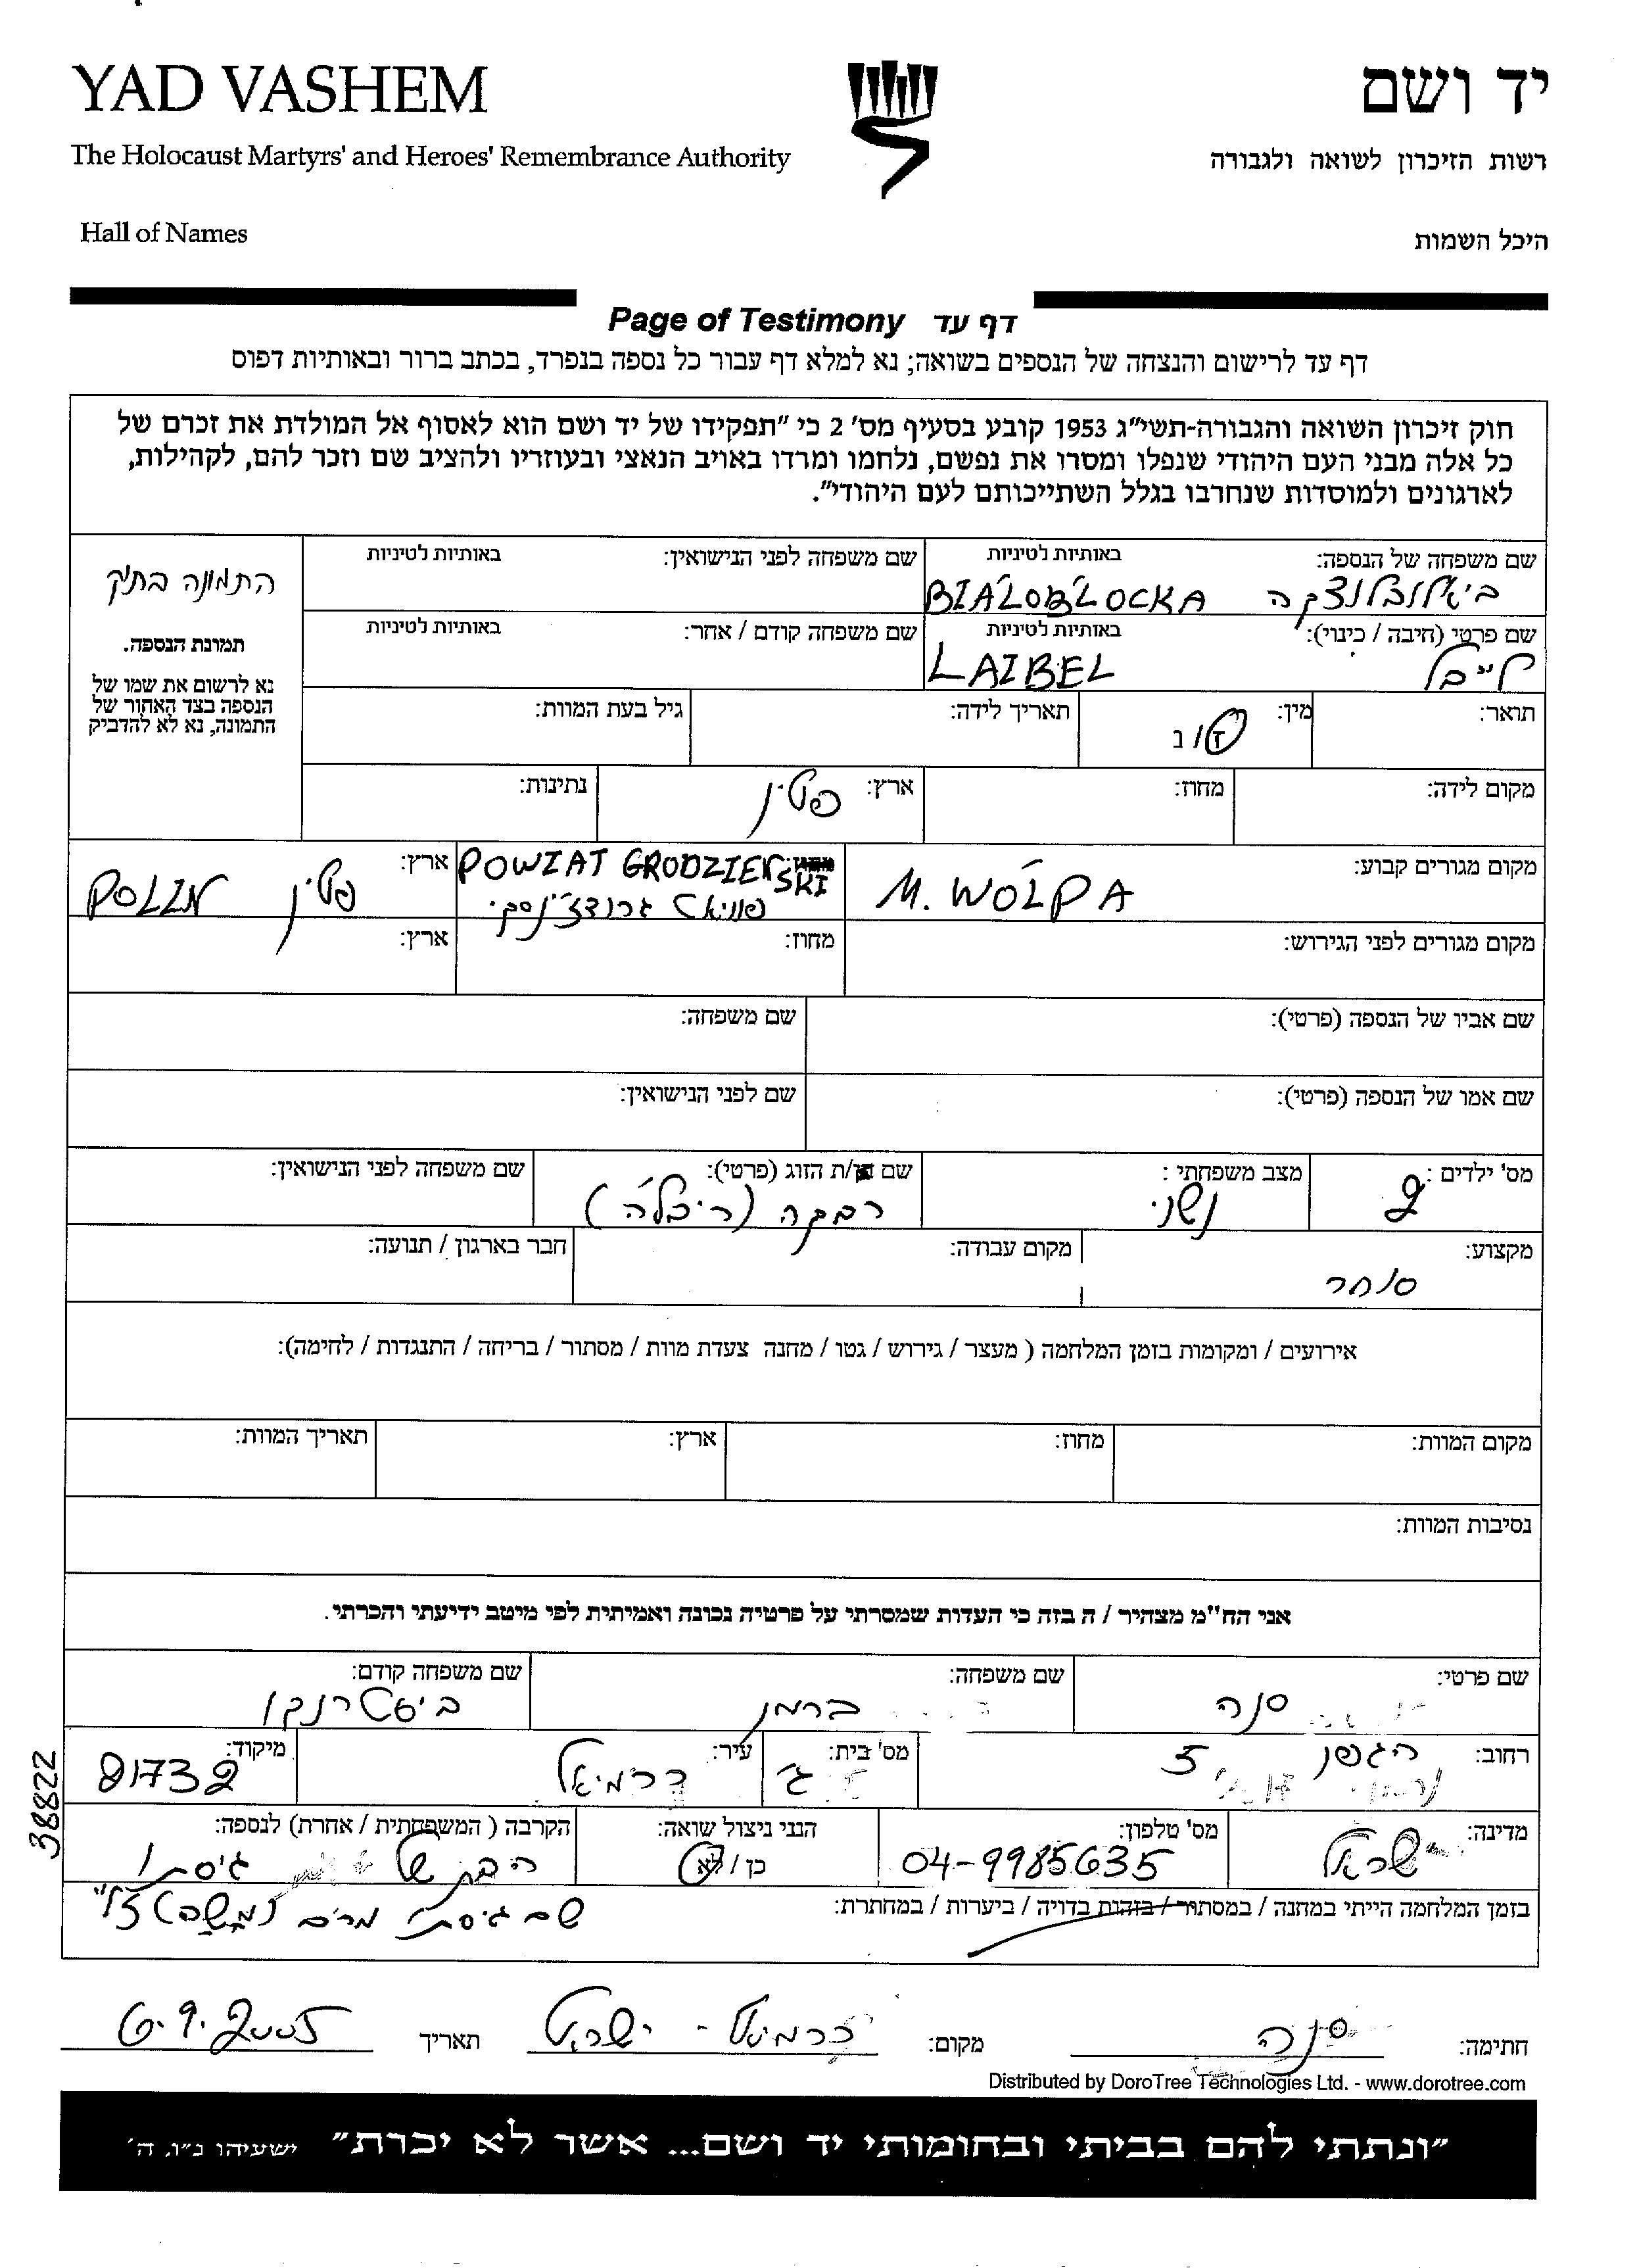 YAD VASHEM
יד ושם
The Holocaust Martyrs' and Heroes' Remembrance Authority
רשות הזיכרון לשואה ולגבורה
Hall of Names
היכל השמות
Page of Testimony דף עד
דף עד לרישום והנצחה של הנספים בשואה; נא למלא דף עבור כל נספה בנפרד, בכתב ברור ובאותיות דפוס
חוק זיכרון השואה והגבורה-תשי"ג 1953 קובע בסעיף מס' 2 כי "תפקידו של יד ושם הוא לאסוף אל המולדת את זכרם של
כל אלה מבני העם היהודי שנפלו ומסרו את נפשם, נלחמו ומרדו באויב הנאצי ובעוזריו ולהציב שם וזכר להם, לקהילות,
לארגונים ולמוסדות שנחרבו בגלל השתייכותם לעם היהודי".
שם משפחה של הנספה: באותיות לטיניות שם משפחה לפני הנישואין: באותיות לטיניות
ביאלובלוצקה BIAŁOBŁOCKA
התמונה בתיק
שם פרטי (חיבה / כינוי): באותיות לטיניות שם משפחה קודם / אחר: באותיות לטיניות
לייבל LAIBEL
תמונת הנספה.
נא לרשום את שמו של
הנספה בצד האחור של
התמונה, נא לא להדביק
תואר: מין: ז / נ תאריך לידה: גיל בעת המוות:
מקום לידה: מחוז: ארץ: פולין נתינות:
מקום מגורים קבוע: M. WÓLPA POWIAT GRODZIEŃSKI ארץ: פולין POLIN
פוויאט גרודז'ינסקי
מקום מגורים לפני הגירוש: מחוז: ארץ:
שם אביו של הנספה (פרטי): שם משפחה:
שם אמו של הנספה (פרטי): שם לפני הנישואין:
מס' ילדים: 2 מצב משפחתי: נשוי שם בן/ת הזוג (פרטי): רבקה (ריבל'ה) שם משפחה לפני הנישואין:
מקצוע: סוחר מקום עבודה: חבר בארגון / תנועה:
אירועים / ומקומות בזמן המלחמה ( מעצר / גירוש / גטו / מחנה צעדת מוות / מסתור / בריחה / התנגדות / לחימה):
מקום המוות: מחוז: ארץ: תאריך המוות:
נסיבות המוות:
אני הח"מ מצהיר / ה בזה כי העדות שמסרתי על פרטיה נכונה ואמיתית לפי מיטב ידיעתי והכרתי.
שם פרטי: סוניה שם משפחה: ברמן שם משפחה קודם: ביסטרונקו
רחוב: הגפן 5 מס' בית: ג' עיר: כרמיאל מיקוד: 81732
38822
מדינה: ישראל מס' טלפון: 04-9985635 הנני ניצול שואה: כן / לא הקרבה ( המשפחתית / אחרת) לנספה: הבת של גיסתו
בזמן המלחמה הייתי במחנה / במסתור / בזהות בדויה / ביערות / במחתרת:
שם גיסתו מרים (משה) ז"ל
חתימה: סוניה מקום: כרמיאל - ישראל תאריך 6.9.2005
Distributed by DoroTree Technologies Ltd. - www.dorotree.com
"ונתתי להם בביתי ובחומותי יד ושם... אשר לא יכרת" ישעיהו נ"ו, ה'